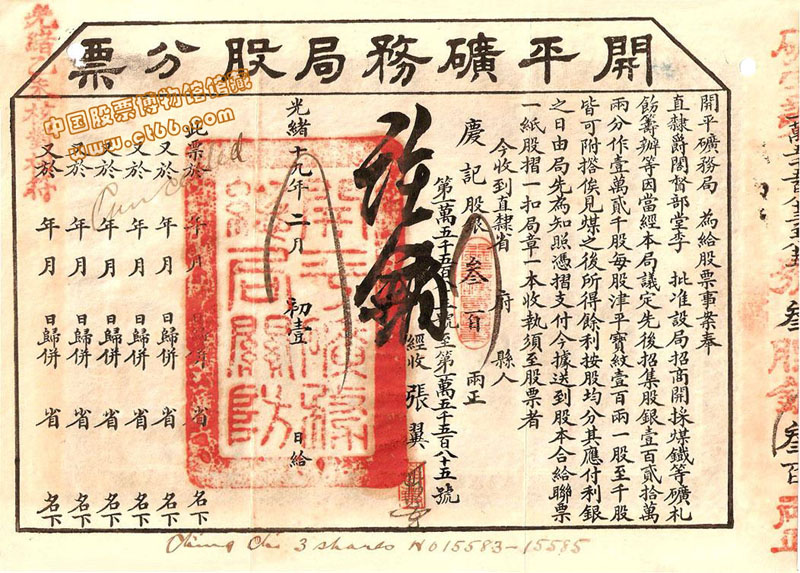 開平礦務局股分票
開平礦務局 為給股票事案奉
直隸爵閣督部堂李 批准設局招商開採煤鐵等礦札
飭籌辦等因當經本局議定先後招集股銀壹百貳拾萬
兩分作壹萬貳千股每股津平寶紋壹百兩一股至千股
皆可附搭俟見煤之後所得餘利按股均分其應付利銀
之日由局先為知照憑摺支付今據送到股本合給聯票
一紙股摺一扣局章一本收執須至股票者
今收到直隸省 府 縣人
慶記股銀 叁百 兩正
第一萬五千五百八十三號至第一萬五千五百八十五號
經收 張翼
註銷
光緒十九年二月 初壹 日給
此票於 年 月 日歸併 省 名下
又於 年 月 日歸併 省 名下
又於 年 月 日歸併 省 名下
又於 年 月 日歸併 省 名下
又於 年 月 日歸併 省 名下
又於 年 月 日歸併 省 名下
Cancelled
Ching Chi 3 shares No 15583-15585
中国股票博物馆馆藏
www.cs66.com